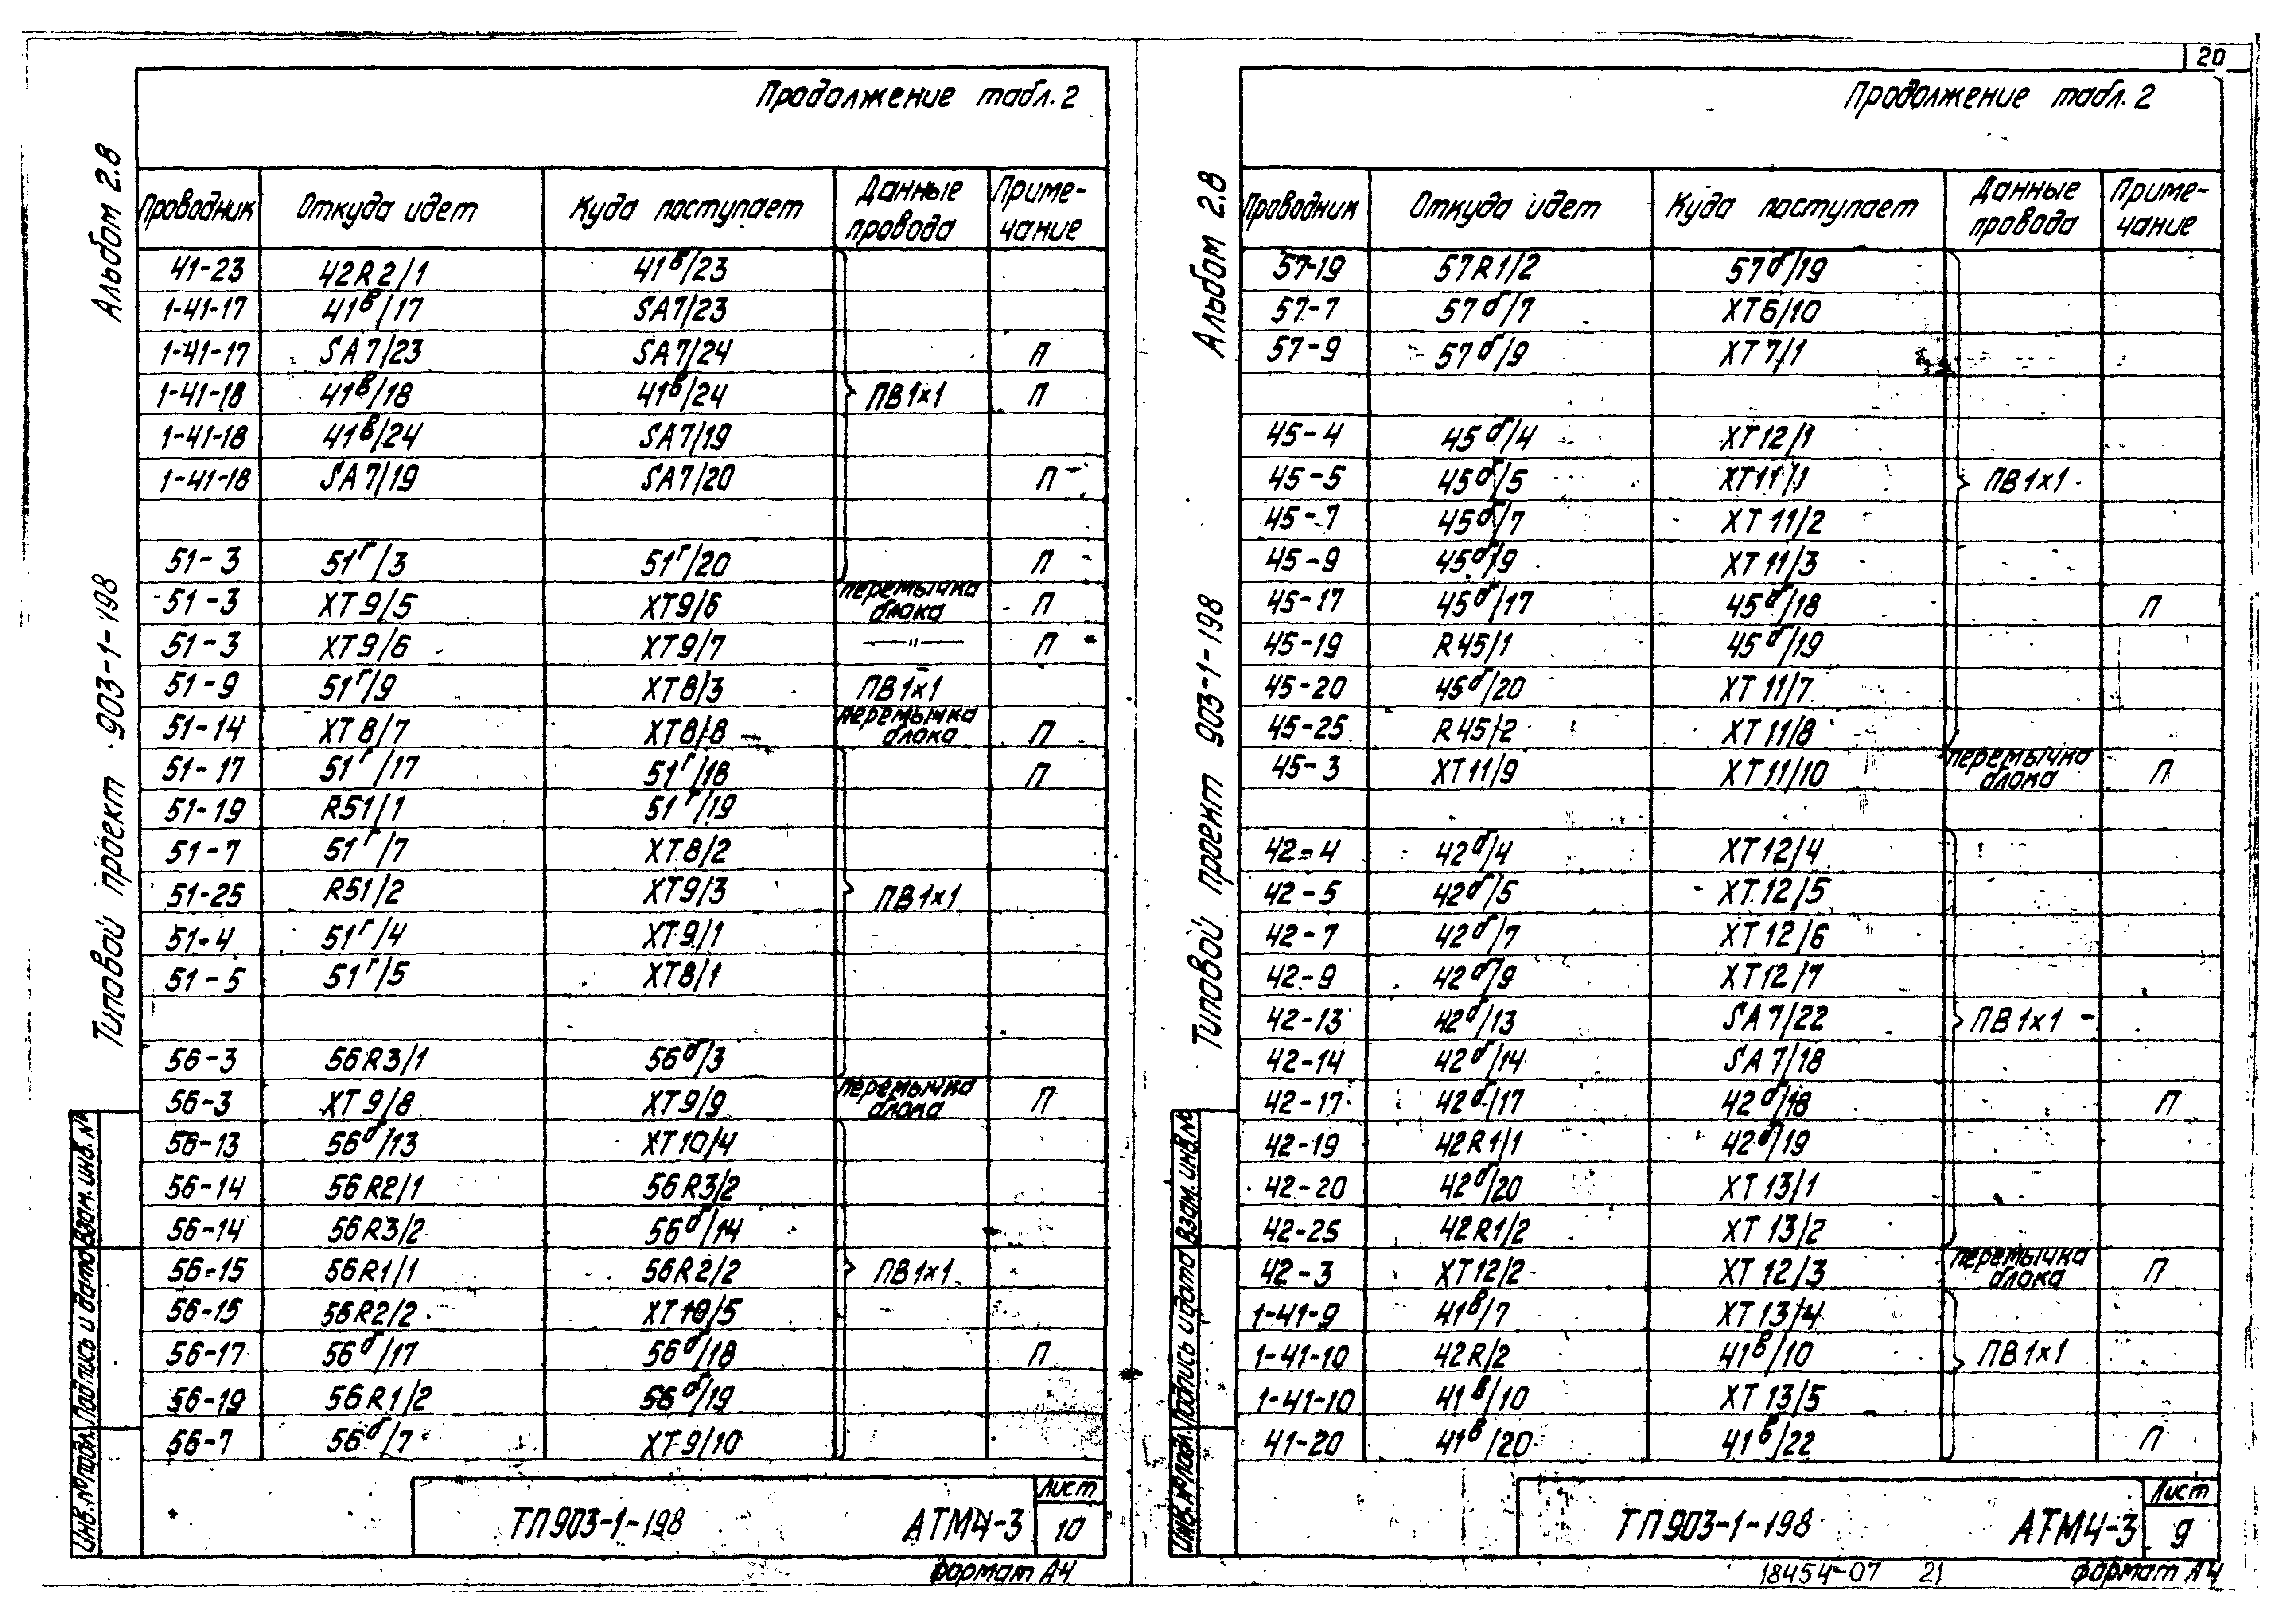 20
Продолжение табл. 2
Альбом 2.8
Типовой проект 903-1-198
Проводник Откуда идет Куда поступает Данные провода Примечание
41-23 42R2/1 41в/23
1-41-17 41в/17 SA7/23
1-41-17 SA7/23 SA7/24 П
1-41-18 41в/18 41в/24 ПВ1×1 П
1-41-18 41в/24 SA7/19
1-41-18 SA7/19 SA7/20 П
51-3 51г/3 51г/20 П
51-3 XT9/5 XT9/6 перемычка блока П
51-3 XT9/6 XT9/7 —"— П
51-9 51г/9 XT8/3 ПВ1×1
51-14 XT8/7 XT8/8 перемычка блока П
51-17 51г/17 51г/18 П
51-19 R51/1 51г/19
51-7 51г/7 XT8/2
51-25 R51/2 XT9/3 ПВ1×1
51-4 51г/4 XT9/1
51-5 51г/5 XT8/1
56-3 56R3/1 56б/3
56-3 XT9/8 XT9/9 перемычка блока П
56-13 56б/13 XT10/4
56-14 56R2/1 56R3/2
56-14 56R3/2 56б/14
56-15 56R1/1 56R2/2 ПВ1×1
56-15 56R2/2 XT10/5
56-17 56б/17 56б/18 П
56-19 56R1/2 56б/19
56-7 56б/7 XT9/10
Инв. № подл. Подпись и дата Взам. инв. №
ТП903-1-198 АТМ4-3 Лист 10
формат А4
Продолжение табл. 2
Альбом 2.8
Типовой проект 903-1-198
Проводник Откуда идет Куда поступает Данные провода Примечание
57-19 57R1/2 57б/19
57-7 57б/7 XT6/10
57-9 57б/9 XT7/1
45-4 45б/4 XT12/1
45-5 45б/5 XT11/1 ПВ1×1
45-7 45б/7 XT11/2
45-9 45б/9 XT11/3
45-17 45б/17 45б/18 П
45-19 R45/1 45б/19
45-20 45б/20 XT11/7
45-25 R45/2 XT11/8
45-3 XT11/9 XT11/10 перемычка блока П
42-4 42б/4 XT12/4
42-5 42б/5 XT12/5
42-7 42б/7 XT12/6
42-9 42б/9 XT12/7
42-13 42б/13 SA7/22 ПВ1×1
42-14 42б/14 SA7/18
42-17 42б/17 42б/18 П
42-19 42R1/1 42б/19
42-20 42б/20 XT13/1
42-25 42R1/2 XT13/2
42-3 XT12/2 XT12/3 перемычка блока П
1-41-9 41в/7 XT13/4
1-41-10 42R/2 41в/10 ПВ1×1
1-41-10 41в/10 XT13/5
41-20 41в/20 41в/22 П
Инв. № подл. Подпись и дата Взам. инв. №
ТП903-1-198 АТМ4-3 Лист 9
18454-07 21 формат А4